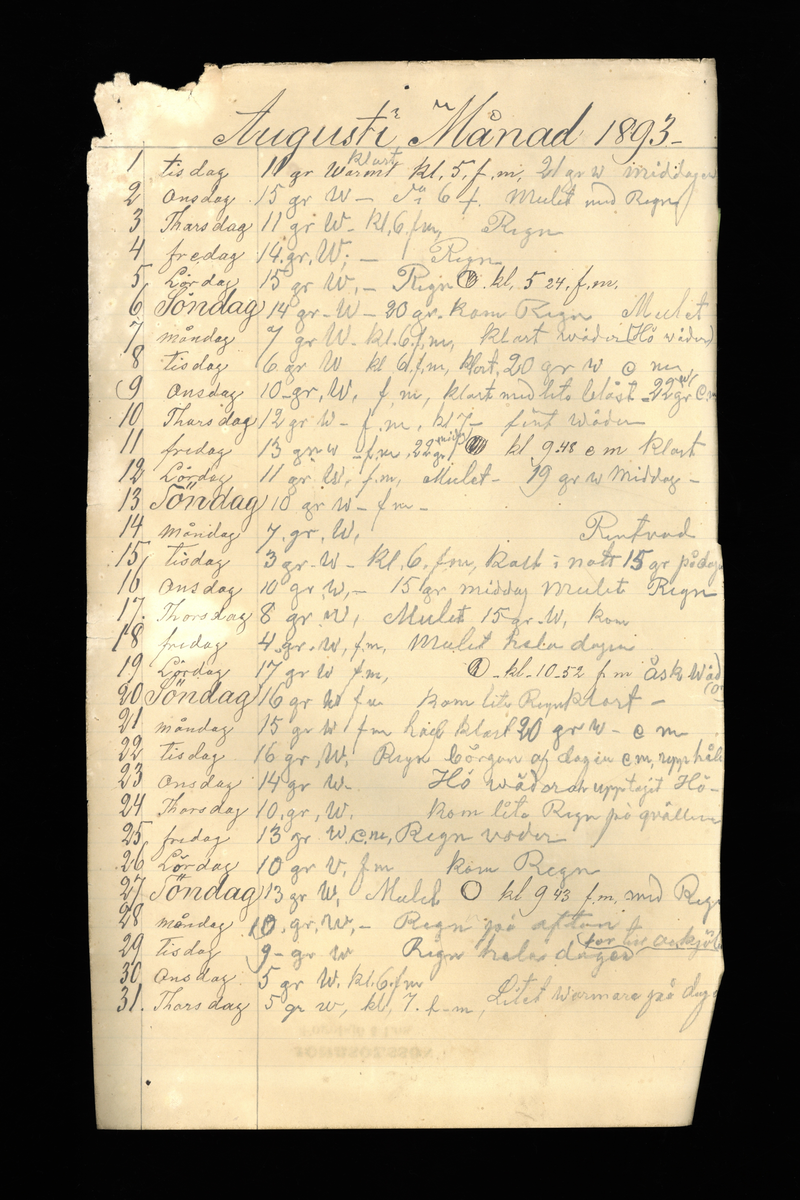 Augusti Månad 1893-
1 tisdag 11 gr Warmt klart kl, 5, f, m, 21 gr w middagen
2 Onsdag 15 gr W - 6 f. Mulet med Regn
3 Tharsdag 11 gr W- kl, 6. fm, Regn
4 fredag 14. gr, W; - Regn
5 Lördag 15 gr W, - Regn kl, 5 24. f. m.
6 Söndag 14 gr - W - 20 gr. kom Regn Mulet
7 måndag 7 gr W- kl. 6. f. m, klart wäder (Hö wäder)
8 tisdag 6 gr W kl 6 f, m, klart, 20 gr w e m
9 Onsdag 10 - gr, W, f, m, klart med lite blåst - 22 gr e m
10 Tharsdag 12 gr W - f, m, kl 7 - fint wäder
11 fredag 13 gr w - f m, 22 gr midd kl 9 48 e m klart
12 Lördag 11 gr W, f, m, Mulet - 19 gr w Middag -
13 Söndag 10 gr w - f m -
14 måndag 7, gr, W,
15 tisdag 3 gr - W - kl, 6, f m, kalt i natt 15 gr på dage
16 Onsdag 10 gr W, - 15 gr middag Mulet Regn
17. Thorsdag 8 gr W, Mulet 15 gr. W, kom
18 fredag 4. gr. W, f, m, Mulet hela dagen
19 Lördag 17 gr W f m, kl - 10 - 52 f m Åsk Wäd
20 Söndag 16 gr W f m kom lite Regn klart -
21 måndag 15 gr W f m klart 20 gr w - e m
22 tisdag 16 gr, W, Regn Börgan af dagen e m, upphåll
23 Onsdag 14 gr W - Hö wäder upptagit Hö -
24 Tharsdag 10, gr, W. kom lite Regn på qvällen
25 fredag 13 gr W. e. m, Regn väder
26 Lördag 10 gr V, f m kom Regn
27 Söndag 13 gr W, Mulet kl 9 43 f. m, med Regn
28 måndag 10, gr, W, - Regn på aftan
29 tisdag 9 - gr w Regn hela dagen
30 Onsdag 5 gr W. kl. 6. f m
31. Tharsdag 5 gr w, kl, 7. f - m, Litet warmare på dag